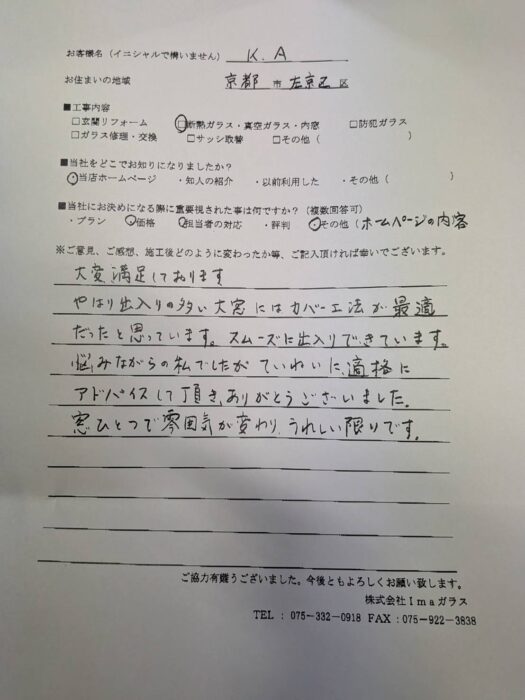 お客様名(イニシャルで構いません) K.A
お住まいの地域 京都 市 左京区 区
■工事内容
□玄関リフォーム □断熱ガラス・真空ガラス・内窓 □防犯ガラス
□ガラス修理・交換 □サッシ取替 □その他( )
■当社をどこでお知りになりましたか?
・当店ホームページ ・知人の紹介 ・以前利用した ・その他( )
■当社にお決めになる際に重要視された事は何ですか?(複数回答可)
・プラン ・価格 ・担当者の対応 ・評判 ・その他(ホームページの内容
※ご意見、ご感想、施工後どのように変わったか等、ご記入頂ければ幸いでございます。
大変満足しております
やはり出入りの多い大窓にはカバー工法が最適
だったと思っています。スムーズに出入りできています。
悩みながらの私でしたが ていねいに、適格に
アドバイスして頂き、ありがとうございました。
窓ひとつで雰囲気が変わり、うれしい限りです。
ご協力有難うございました。今後ともよろしくお願い致します。
株式会社Imaガラス
TEL:075-332-0918 FAX:075-922-3838